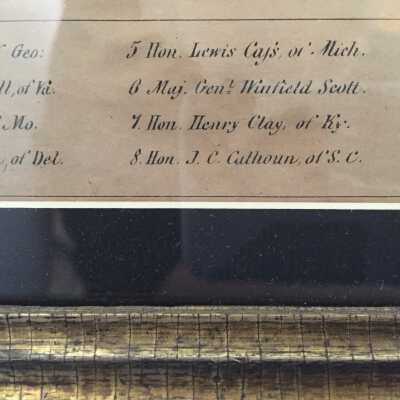 Geo: 5 Hon. Lewis Caſs, of Mich.
of Va. 6 Maj. Genl. Winfield Scott.
Mo. 7. Hon. Henry Clay, of Ky.
, of Del. 8. Hon. J. C. Calhoun, of S. C.